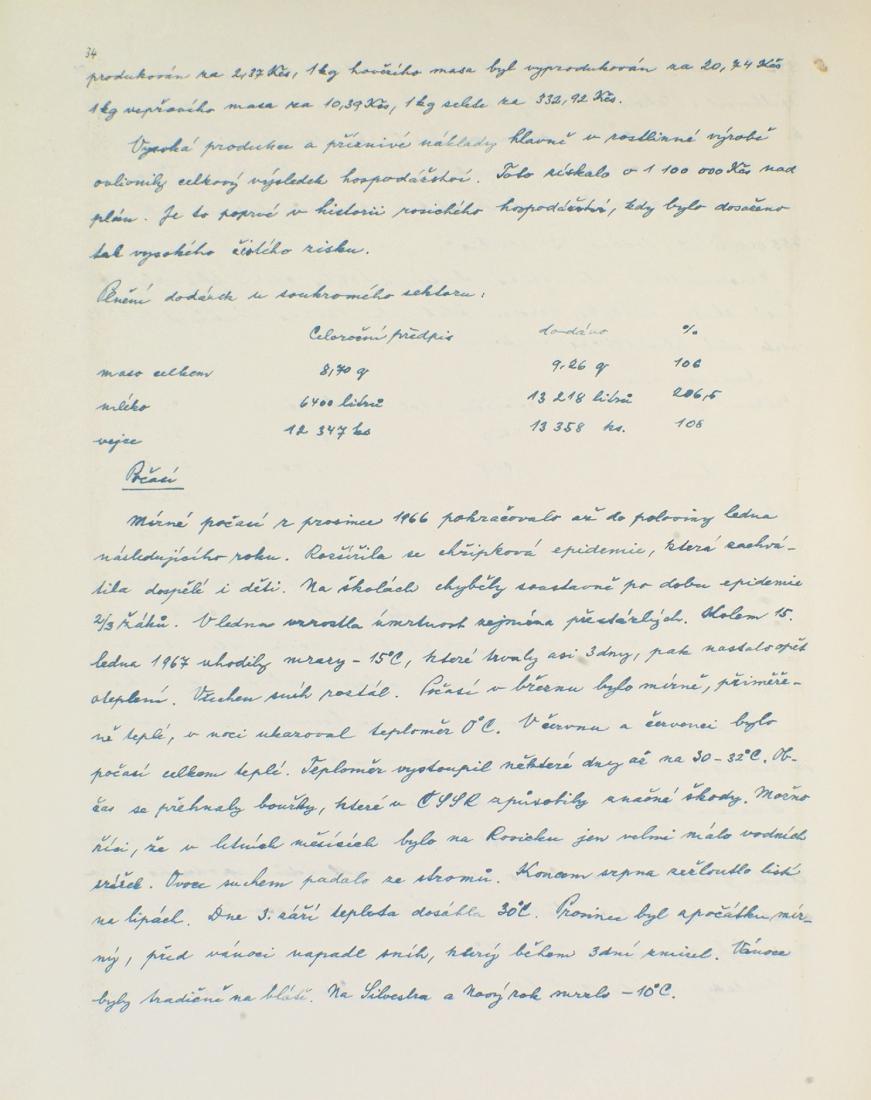 34
produkován za 2,37 Kčs, 1 kg hovězího masa byl vyprodukován za 20,74 Kčs
1 kg vepřového masa za 10,39 Kčs, 1 kg selete za 332,92 Kčs.
Vysoká produkce a příznivé náklady hlavně v rostlinné výrobě
ovlivnily celkový výsledek hospodářství. Toto získalo o 1 100 000 Kčs nad
plán. Je to poprvé v historii rosického hospodářství, kdy bylo dosaženo
tak vysokého čistého zisku.
Plnění dodávek u soukromého sektoru:
Celoroční předpis dodáno %
maso celkem 8,70 q 9,26 q 106
mléko 6400 litrů 13 218 litrů 206,5
vejce 12 347 ks 13 358 ks. 108
Počasí
Mírné počasí z prosince 1966 pokračovalo až do poloviny ledna
následujícího roku. Rozšířila se chřipková epidemie, která zachvá-
tila dospělé i děti. Na školách chyběly soustavně po dobu epidemie
2/3 žáků. V lednu vzrostla úmrtnost zejména přestárlých. Kolem 15.
ledna 1967 uhodily mrazy - 15°C, které trvaly asi 3 dny, pak nastalo opět
oteplení. Všechen sníh roztál. Počasí v březnu bylo mírné, přiměře-
ně teplé, v noci ukazoval teploměr 0°C. V červnu a červenci bylo
počasí celkem teplé. Teploměr vystoupil některé dny až na 30 - 32°C. Ob-
čas se přehnaly bouřky, které v ČSSR způsobily značné škody. Možno
říci, že v letních měsících bylo na Rosicku jen velmi málo vodních
srážek. Ovoce suchem padalo ze stromů. Koncem srpna zežloutlo listí
na lipách. Dne 3. září teplota dosáhla 30°C. Prosinec byl zpočátku mír-
ný, před vánoci napadl sníh, který během 3 dní zmizel. Vánoce
byly tradičně na blátě. Na Silvestra a Nový rok mrzlo - 10°C.